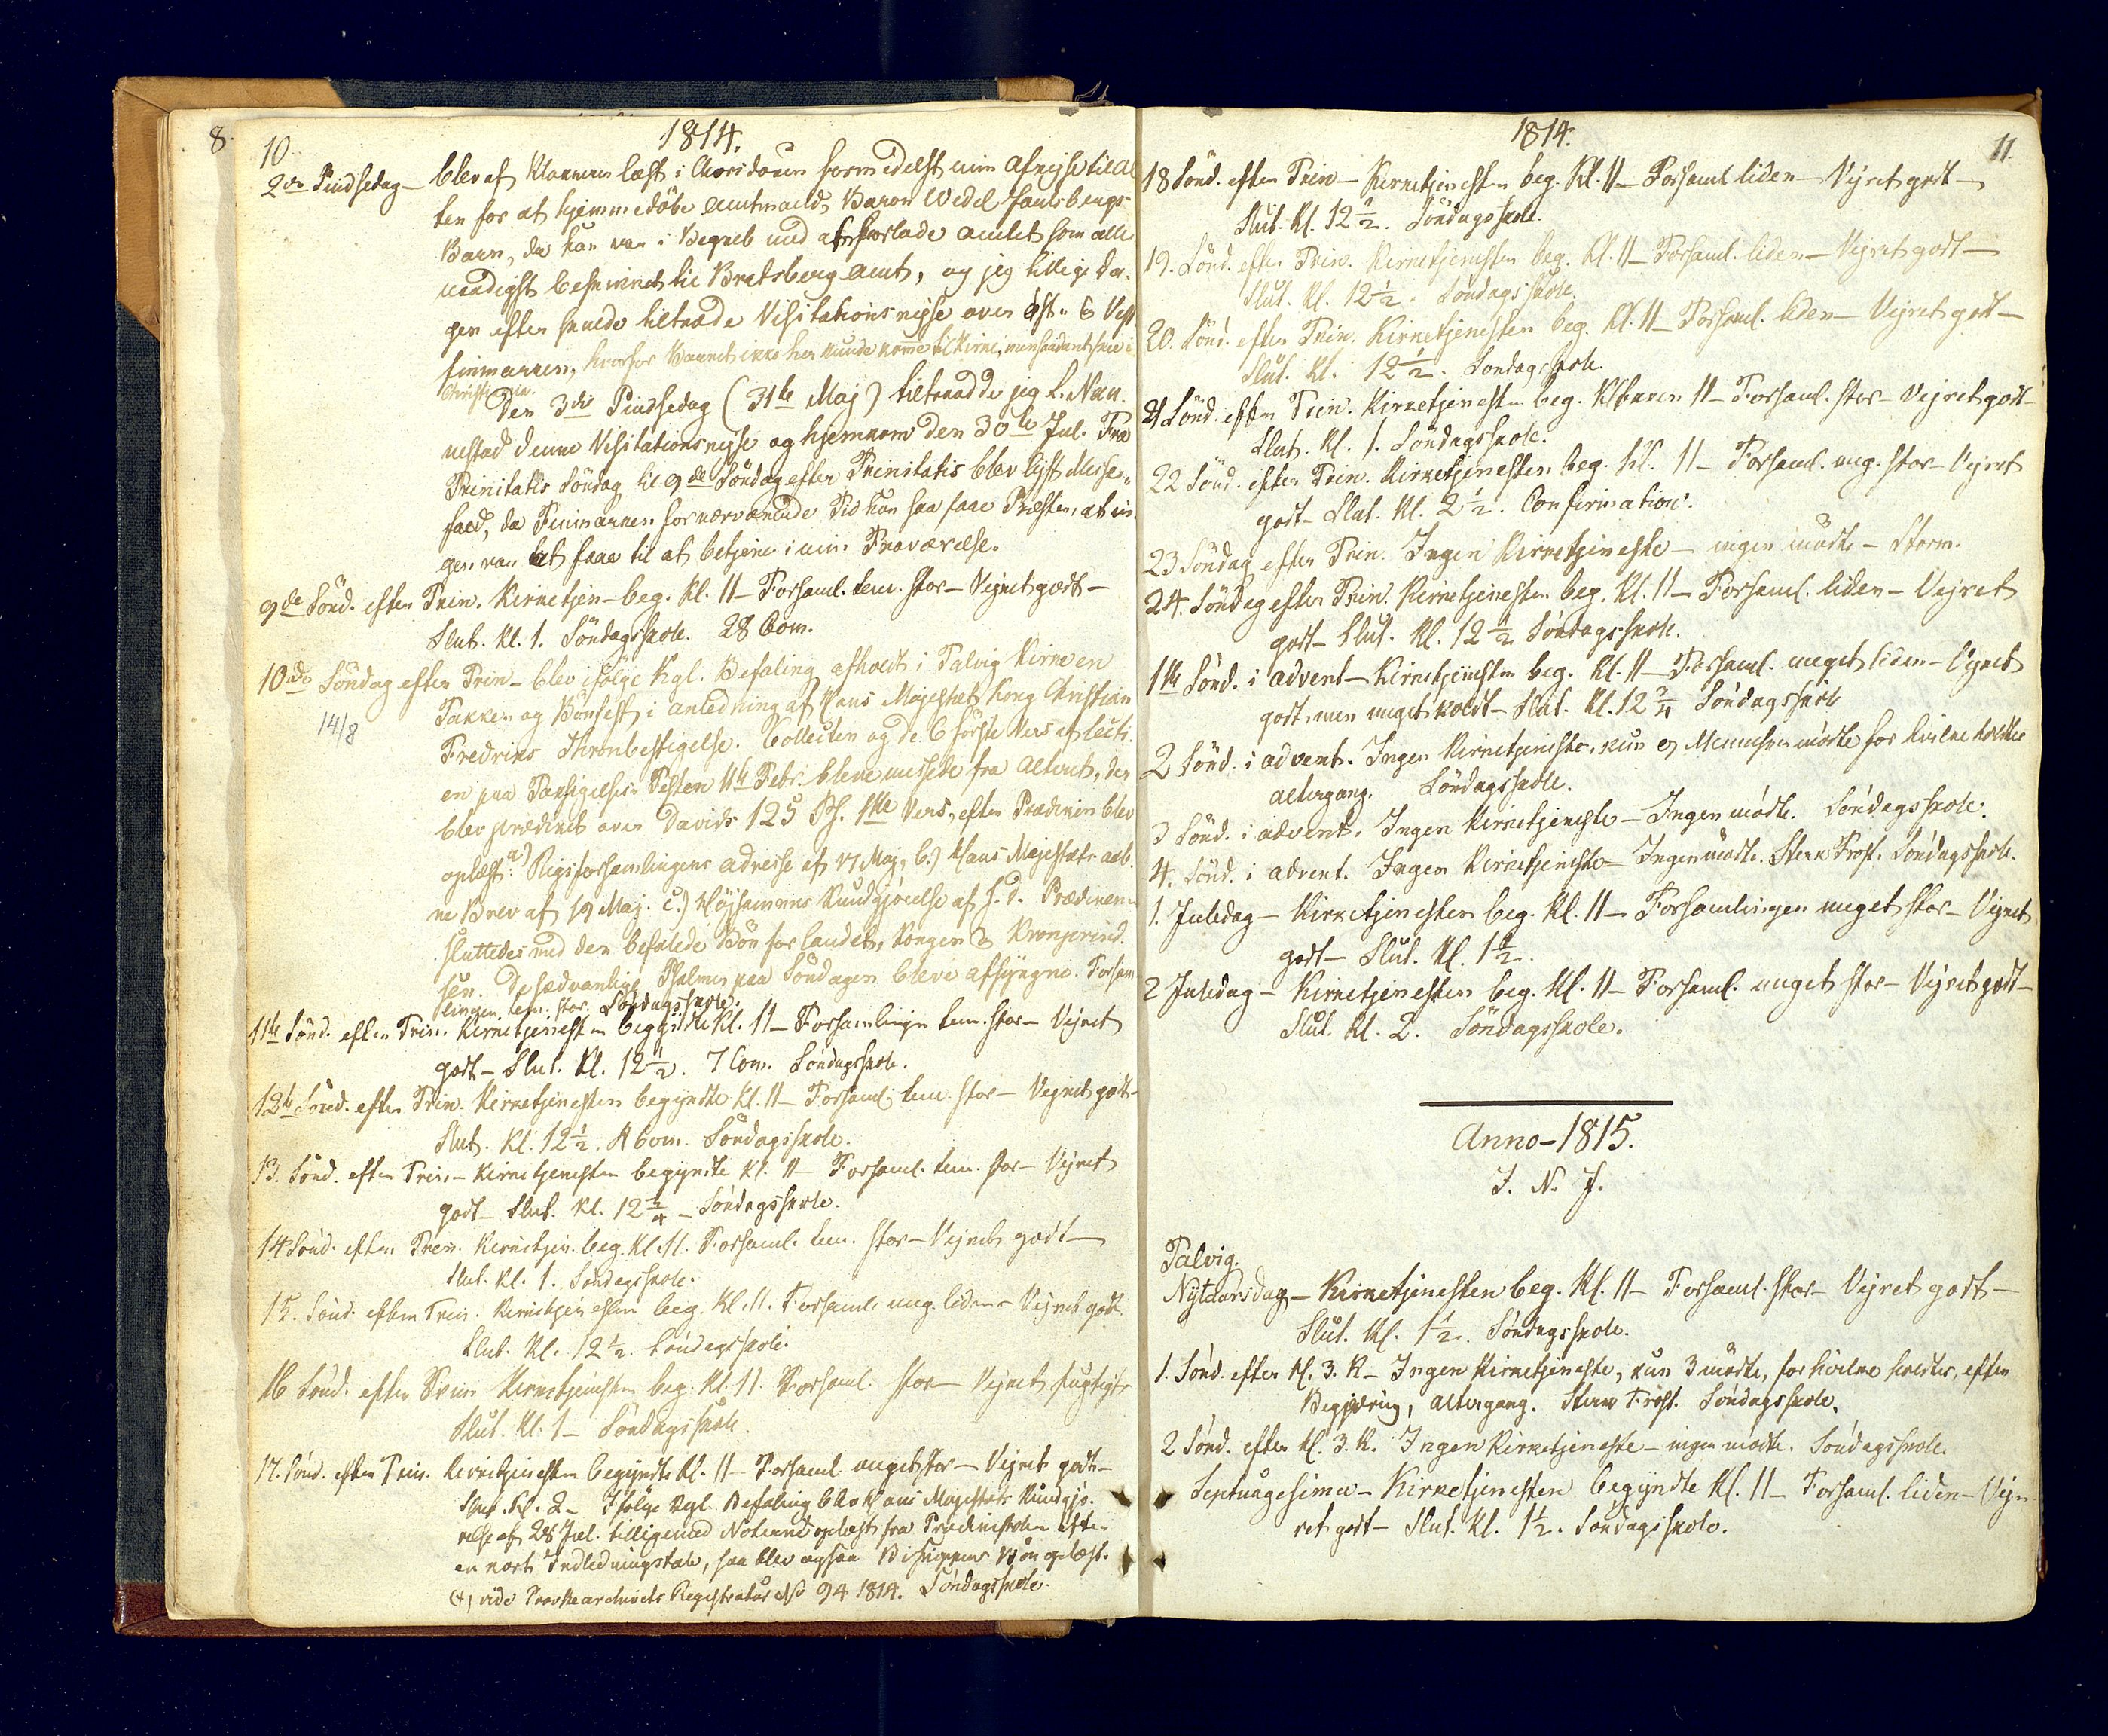 8.
10
1814.
2den Pindsedag - blev af Klokkeren læst i Chorsdøren formedelst min Afrejse til Al
ten for at hjemmedøbe Amtmand, Baron Wedel Jarlsbergs
Barn, da han var i Begreb med at forlade Amtet som aller
naadigst beskikket til Bratsberg Amt, og jeg tillige Da-
gen efter skulde tiltræde Visitationsrejse over Øst- & Vest
finmarken, hvorfor Barnet ikke her kunde komme til Kirke, men saadant skee i
Christiania.
Den 3die Pindsedag (31te Maj) tiltraadde jeg
denne Visitationsrejse og hjemkom den 30te Jul. Fra
Trinitatis Søndag til 9de Søndag efter Trinitatis blev lyst Messe-
fald, da Finmarken for nærværende Tid har saa faae Præster, at in-
gen var at faae til at betjene i min Fraværelse.
9de Sønd. efter Trin. Kirketjen - beg. Kl. 11 - Forsaml. tem. stor - Vejret godt -
Slut. Kl. 1. Søndagsskole. 28 Com.
10de Søndag efter Trin - blev ifølge Kgl. Befaling afholdt i Talvig Kirke en
14/8
Takke- og Bønfest, i Anledning af Hans Majestæt Kong Christian
Fredriks Thronbestigelse. Collecten og de 6 første Vers af Lecti-
en paa Taksigelses-Festen 11te Febr. bleve messede fra Alteret, der
blev prædiket over Davids 125 Ps. 1ste Vers, efter Prædiken blev
oplæst: a) Rigsforsamlingens Adresse af 17 Maj, b.) Hans Majestæts aab-
ne Brev af 19 Maj. c.) Højsammes Kundgjørelse af s. d. Prædikenen
sluttedes med den befalede Bøn for Landet, Kongen & Kronprind-
sen. De sædvanlige Psalmer paa Søndagen bleve afsyngne. Forsam-
lingen tem. stor. Søndagsskole.
11te Sønd. efter Trin. Kirketjenesten begyndte Kl. 11 - Forsamlingen tem. stor - Vejret
godt - Slut. Kl. 12 1/2. 7 Com. Søndagsskole.
12te Sønd. efter Trin. Kirketjenesten begyndte Kl. 11 - Forsaml. tem. stor - Vejret godt -
Slut. Kl. 12 1/2. Com. Søndagsskole.
13. Sønd. efter Trin. - Kirketjenesten begyndte Kl. 11 - Forsaml. tem. stor - Vejret
godt - Slut. Kl. 12 3/4 - Søndagsskole.
14 Sønd. efter Trin. Kirketjen. beg. Kl. 11. Forsaml. tem. stor - Vejret godt -
Slut. Kl. 1. Søndagsskole.
15. Sønd. efter Trin. Kirketjenesten beg. Kl. 11. Forsaml. meg. liden - Vejret godt.
Slut. Kl. 12 1/2. Søndagsskole.
16 Sønd. efter Trin. Kirketjenesten beg. Kl. 11. Forsaml. stor - Vejret fugtigt
Slut. Kl. 1 - Søndagsskole.
17. Sønd. efter Trin. Kirketjenesten begyndte Kl. 11 - Forsaml. meget stor - Vejret godt -
Slut. Kl. 2 - Ifølge Kgl. Befaling blev Hans Majestæts Kundgjø-
relse af 28 Jul. tilligemed Noterne oplæst fra Prædikestolen efter
en kort Indledningstale, saa blev ogsaa Biskoppens Bøn oplæst.
(+) vide Provstearchivets Registratur No 94 1814. Søndagsskole.
1814.
11.
18 Sønd. efter Trin - Kirketjenesten beg. Kl. 11 - Forsaml liden - Vejret godt -
Slut. Kl. 12 1/2. Søndagsskole.
19. Sønd. efter Trin. Kirketjenesten beg. Kl. 11 - Forsaml. liden - Vejret godt -
Slut. Kl. 12 1/2. Søndagsskole.
20. Sønd. efter Trin. Kirketjenesten beg. Kl. 11 - Forsaml. liden - Vejret godt -
Slut. Kl. 12 1/2. Søndagsskole.
21 Sønd. efter Trin. Kirketjenesten beg. Klokken 11 - Forsaml. stor - Vejret godt -
Slut. Kl. 1. Søndagsskole.
22 Sønd. efter Trin. Kirketjenesten beg. Kl. 11 - Forsaml. meg. stor - Vejret
godt - Slut. Kl. 2 1/2. Confirmation.
23 Søndag efter Trin. Ingen Kirketjeneste - ingen mødte - Storm.
24. Søndag efter Trin. Kirketjenesten beg. Kl. 11 - Forsaml. liden - Vejret
godt - Slut. Kl. 12 1/2 Søndagsskole.
1ste Sønd. i Advent - Kirketjenesten beg. Kl. 11 - Forsaml. meget liden - Vejret
godt, men meget koldt - Slut. Kl. 12 3/4 Søndagsskole
2 Sønd. i Advent. Ingen Kirketjeneste, kun 9 Mennesker mødte for hvilke holdtes
Altergang. Søndagsskole.
3 Sønd. i Advent. Ingen Kirketjeneste - Ingen mødte. Søndagsskole.
4. Sønd. i Advent. Ingen Kirketjeneste - Ingen mødte. Sterk Frost. Søndagsskole.
1. Juledag - Kirketjenesten beg. Kl. 11 - Forsamlingen meget stor - Vejret
godt - Slut. Kl. 1 1/2.
2 Juledag - Kirketjenesten beg. Kl. 11 - Forsaml. meget stor - Vejret godt -
Slut. Kl. 2. Søndagsskole.
Anno - 1815.
I. N. J.
Talvig.
Nytaarsdag - Kirketjenesten beg. Kl. 11 - Forsaml. stor - Vejret godt -
Slut. Kl. 1 1/2. Søndagsskole.
1. Sønd. efter H. 3. K - Ingen Kirketjeneste, kun 3 mødte, for hvilke holdtes, efter
Begjæring, Altergang. Sterk Frost. Søndagsskole.
2 Sønd. efter H. 3. K. Ingen Kirketjeneste - ingen mødte. Søndagsskole.
Septuagesima - Kirketjenesten begyndte Kl. 11 - Forsaml. liden - Vej-
ret godt - Slut. Kl. 1 1/2. Søndagsskole.